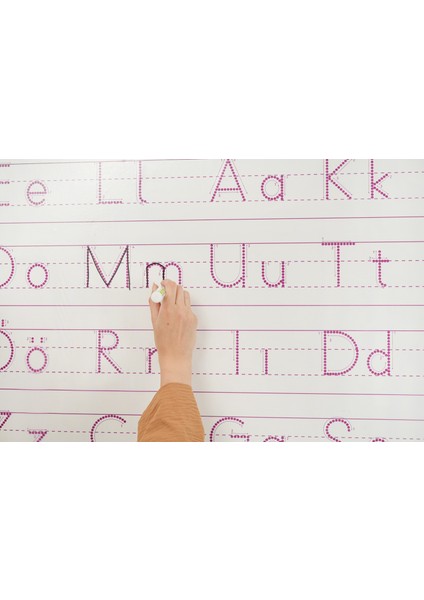 E e L l A a K k
O o M m U u T t
Ö ö R r I ı D d
Z z C G g S s